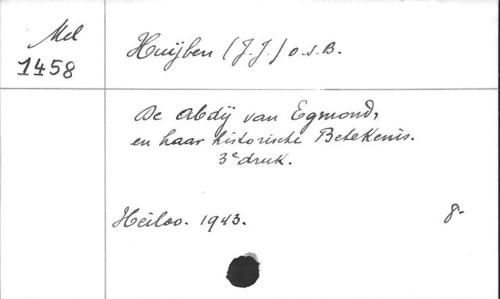 Mel
1458
Huijben (J.J.) o.s.B.
De Abdij van Egmond,
en haar historische Betekenis.
3e druk.
Heiloo. 1943.
8.-